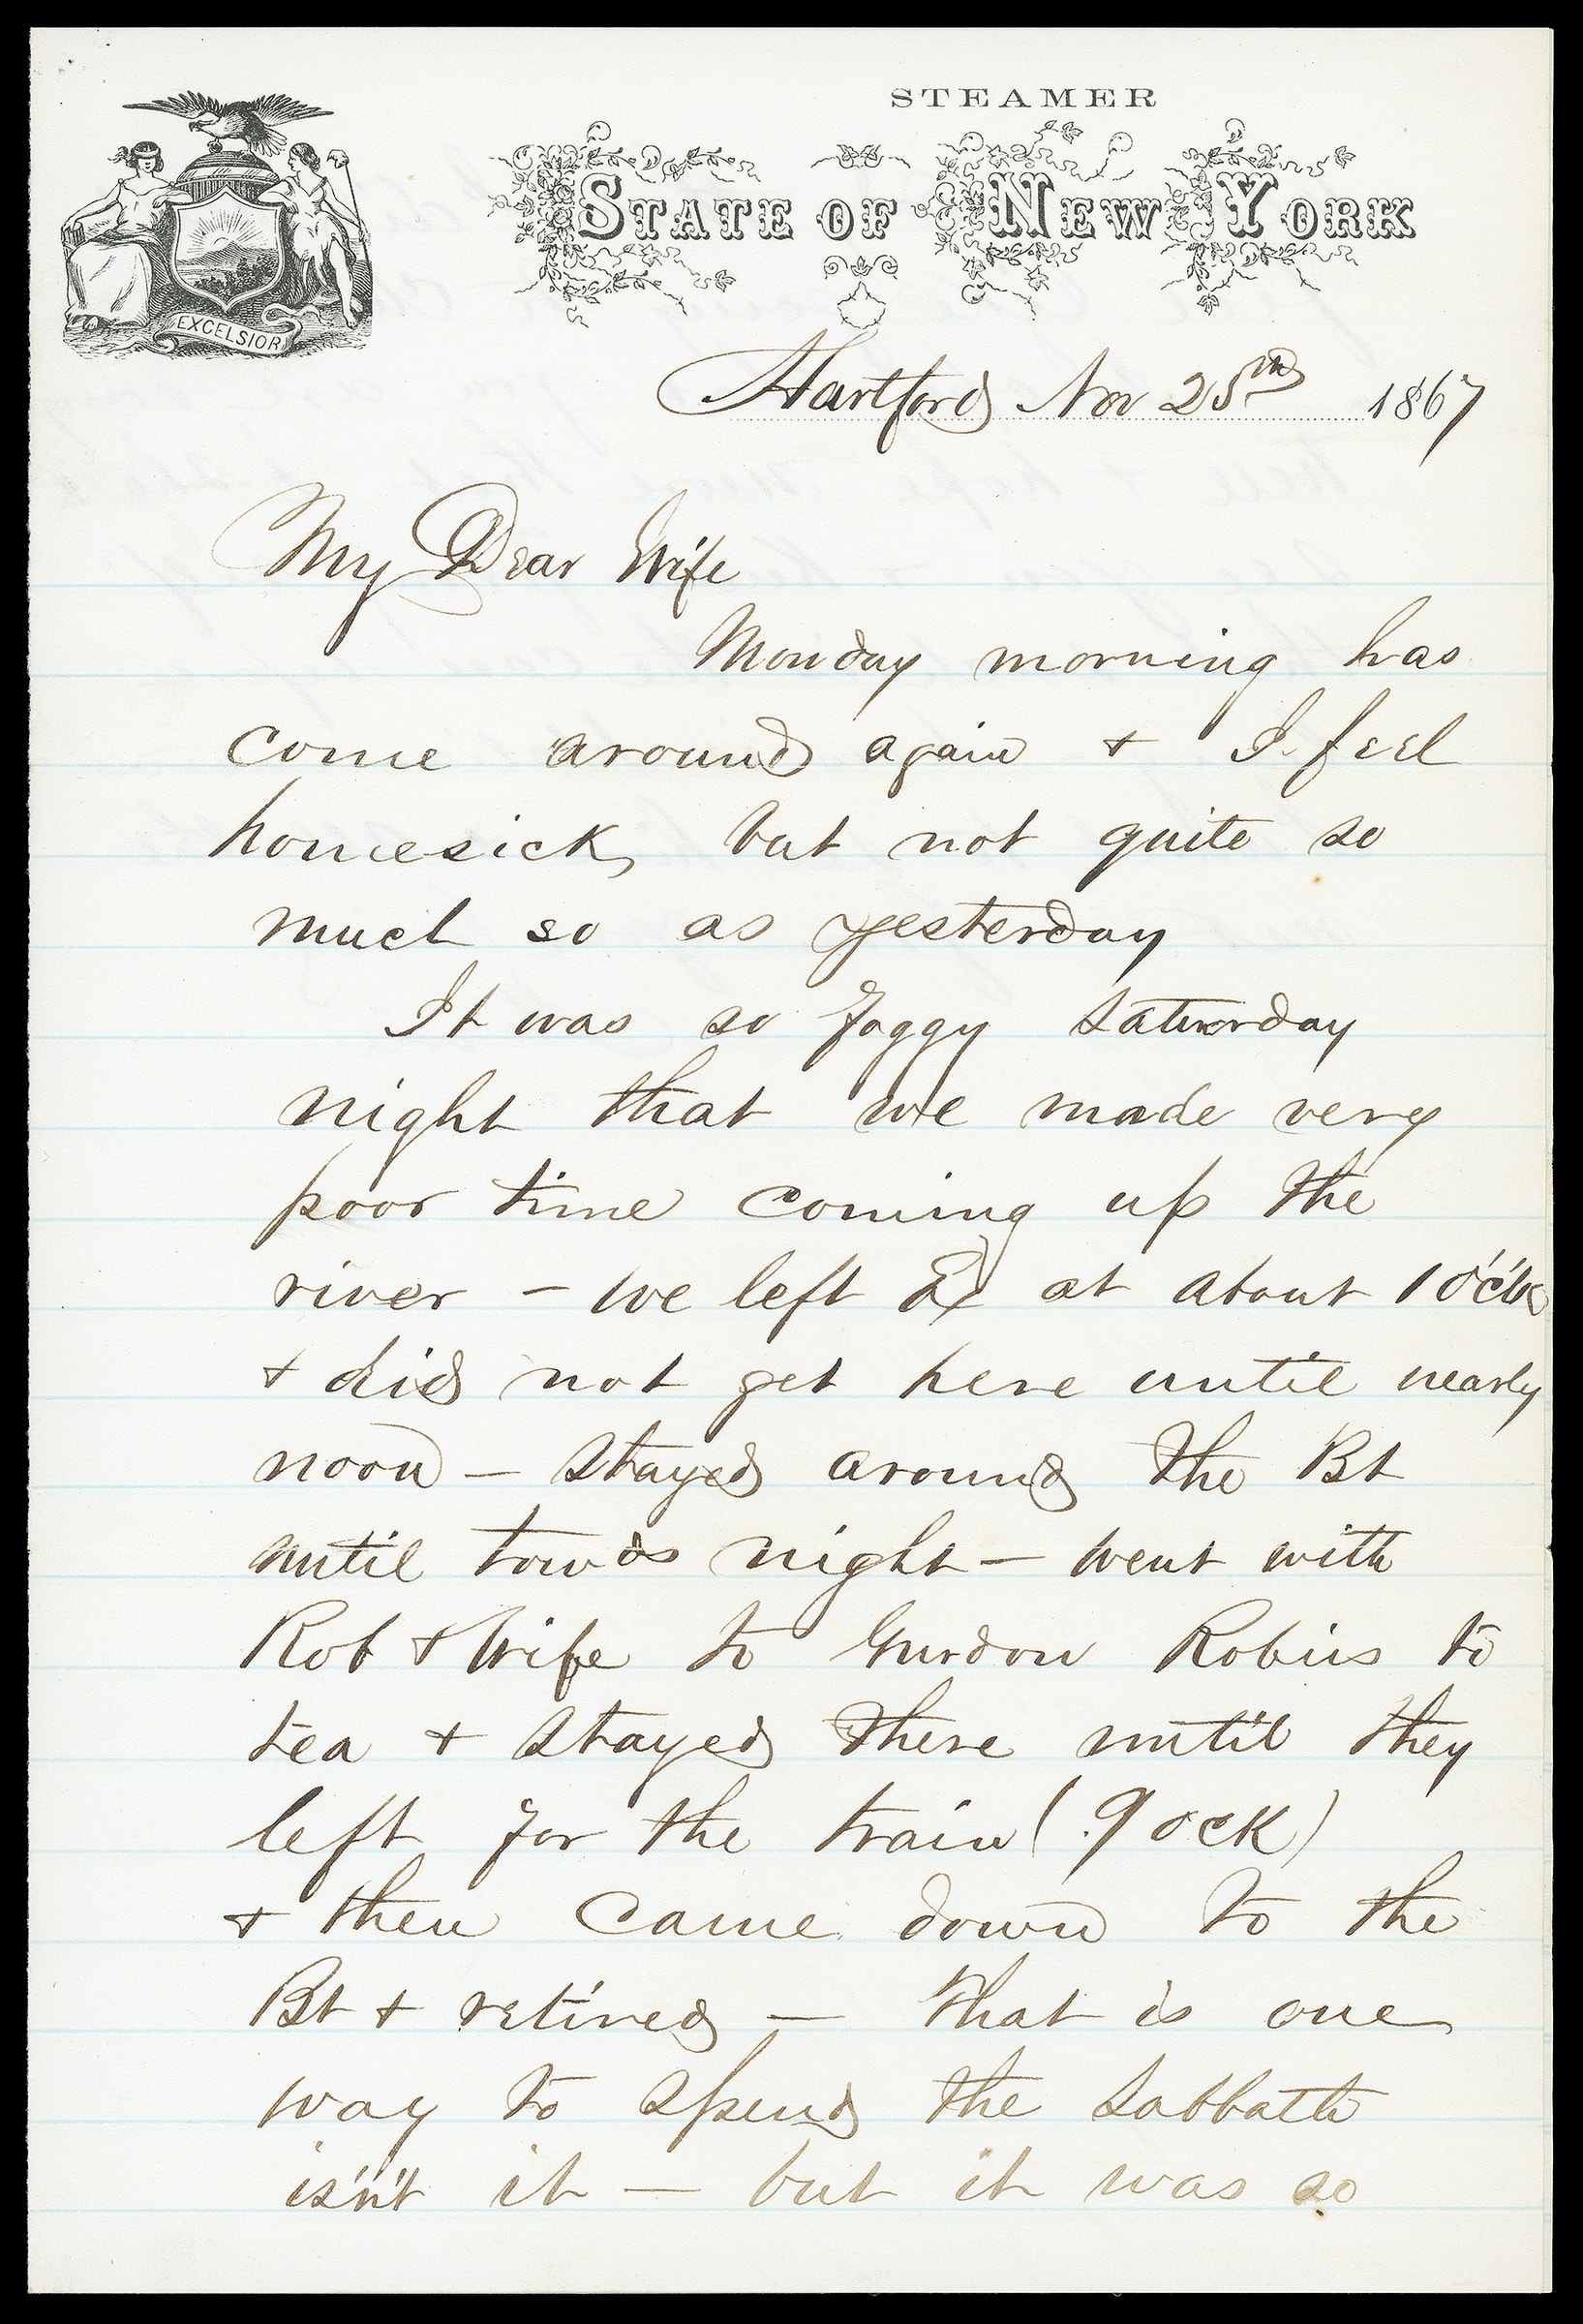 STEAMER
STATE OF NEW YORK
EXCELSIOR
Hartford Nov 25th 1867
My Dear Wife
Monday morning has
come around again + I feel
homesick, but not quite so
much so as yesterday
It was so foggy Saturday
night that we made very
poor time coming up the
river - we left at about 1 o'c'lk
+ did not get here until nearly
noon - stayed around the Bt
until towds night - went with
Rob + Wife to Gurdon Robins to
tea + stayed there until they
left for the train (9 ock)
+ then came down to the
Bt + retired - that is one
way to spend the Sabbath
is'n't it - but it was so